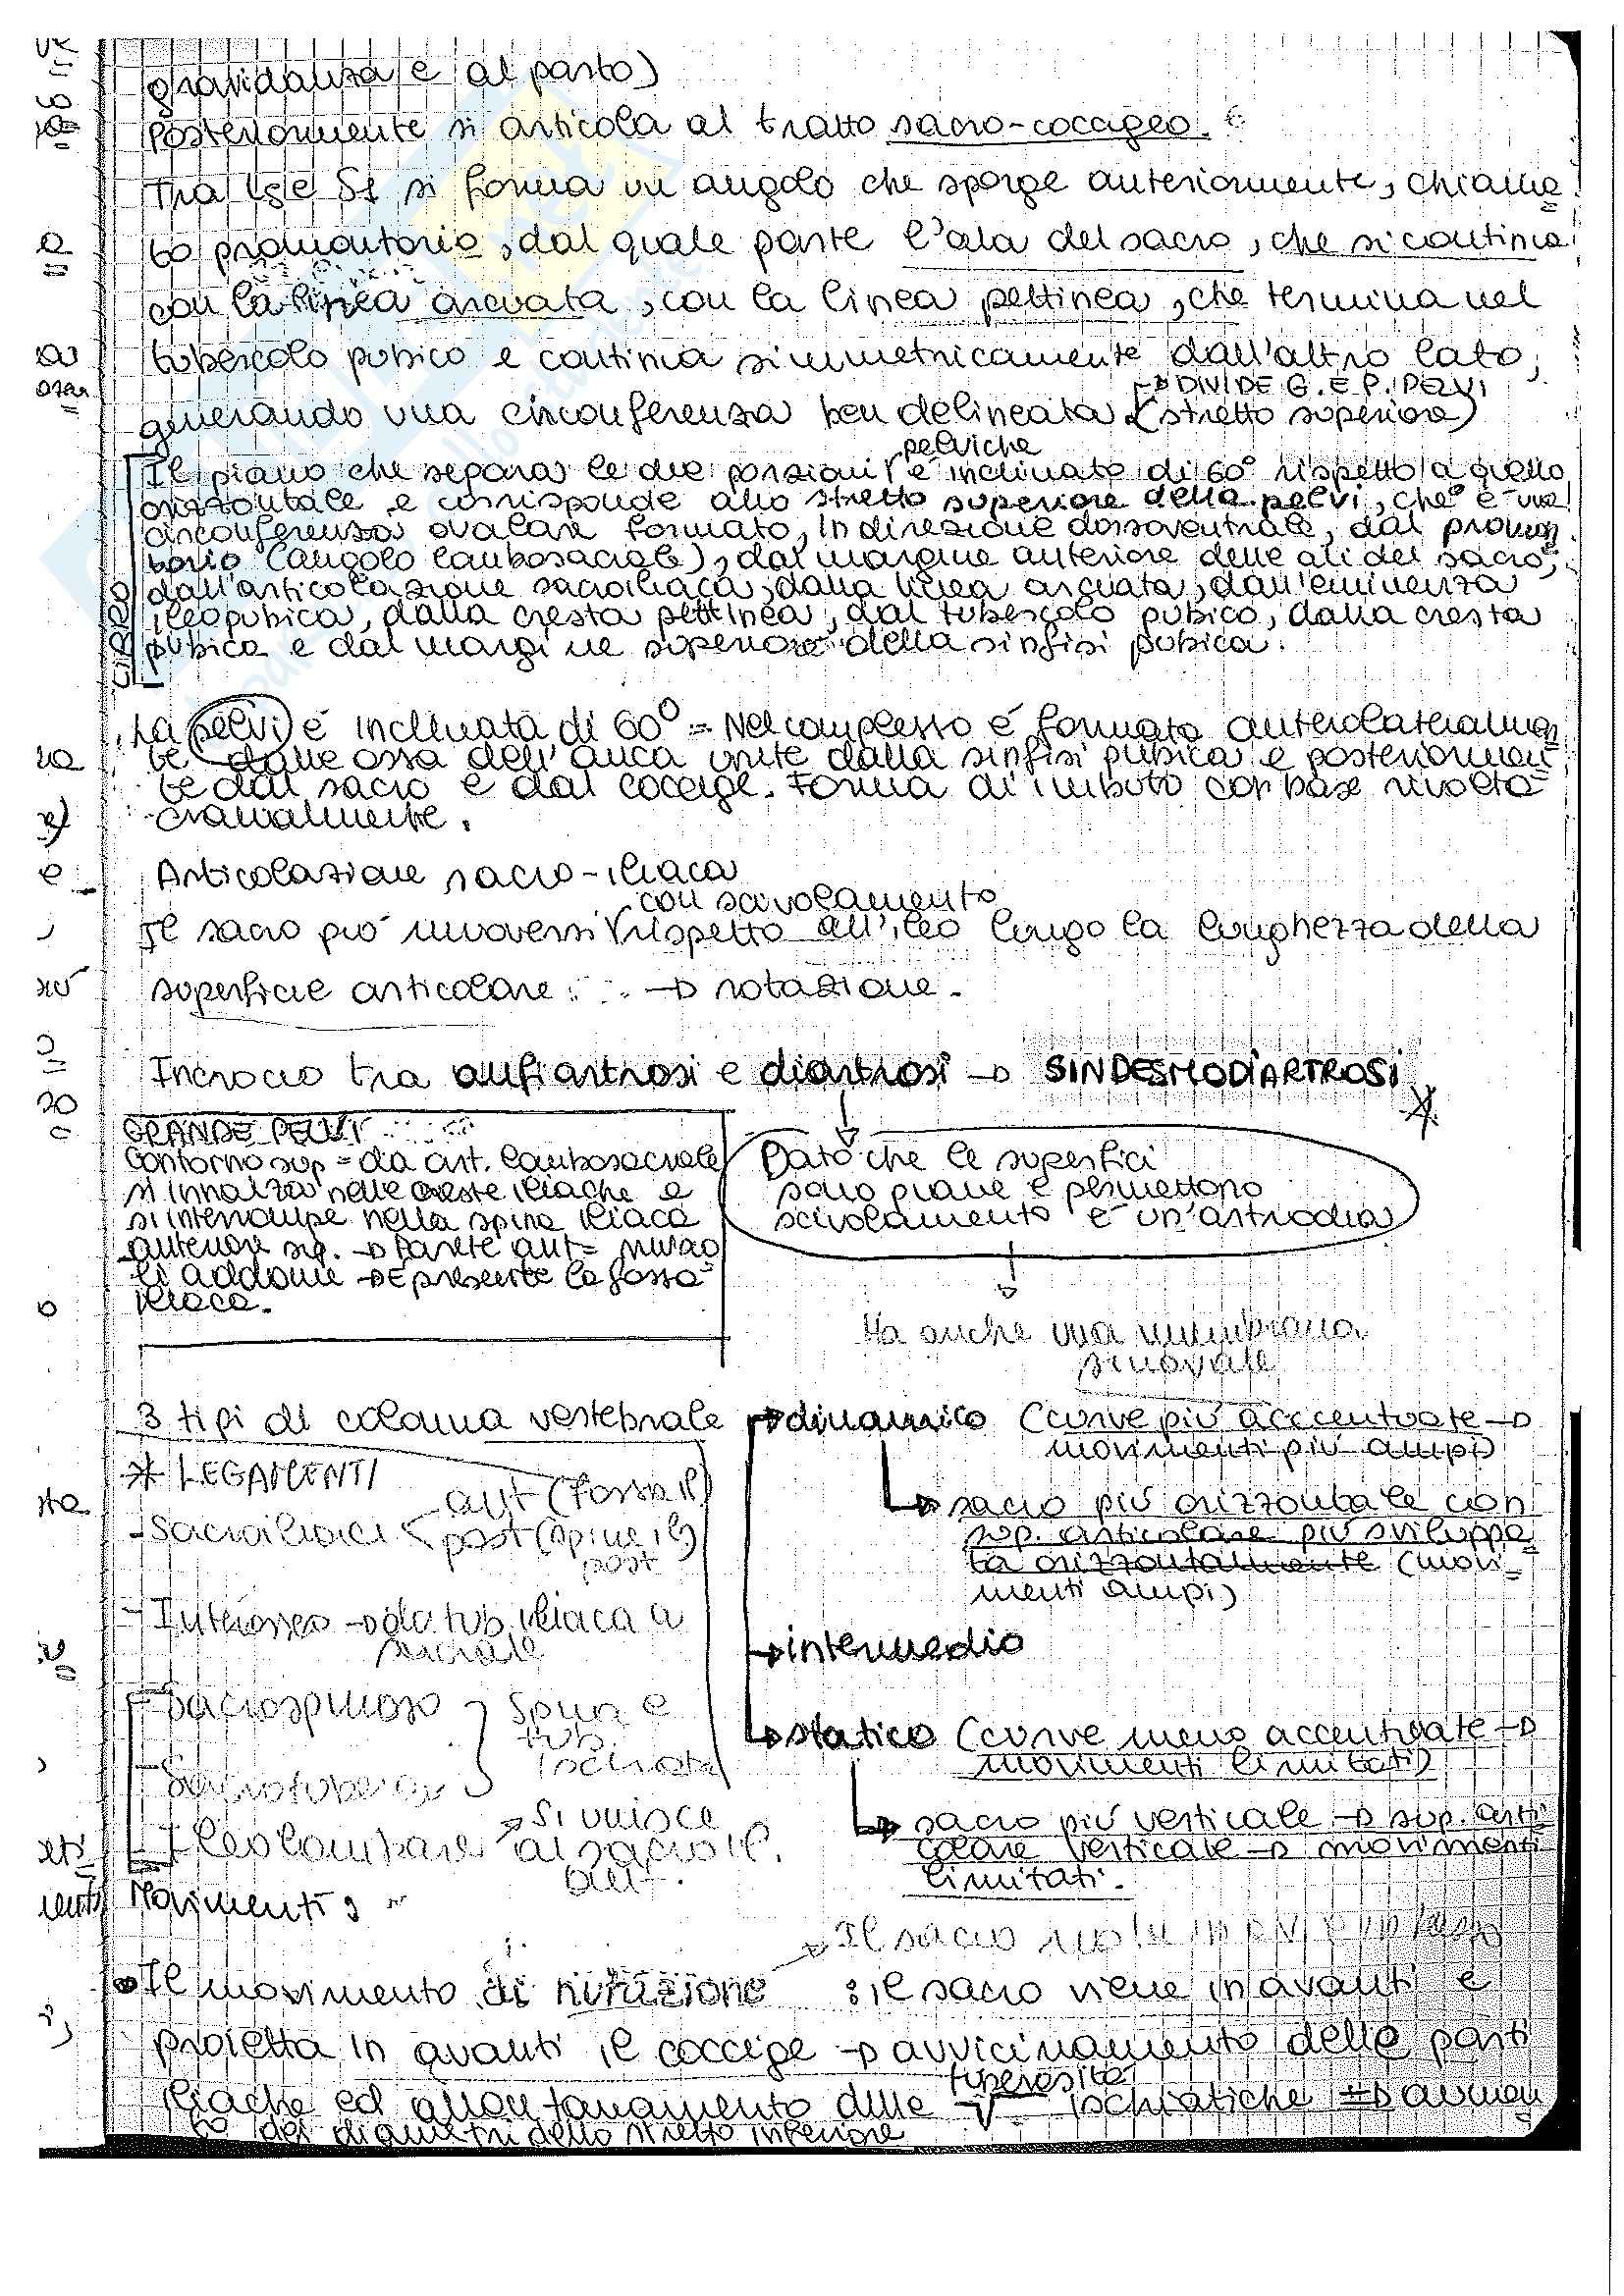 gravidanza e al parto)
Posteriormente si articola al tratto sacro-coccigeo.
Tra L5 e S1 si forma un angolo che sporge anteriormente, chiama=
to promontorio, dal quale parte l'ala del sacro, che si continua
con la linea arcuata, con la linea pettinea, che termina nel
tubercolo pubico e continua simmetricamente dall'altro lato,
→ DIVIDE G. E P. PELVI
generando una circonferenza ben delineata. (stretto superiore)
pelviche
Il piano che separa le due porzioni è inclinato di 60° rispetto a quello
orizzontale e corrisponde allo stretto superiore della pelvi, che è una
circonferenza ovalare formato, in direzione dorsoventrale, dal promon
torio (angolo lombosacrale), dal margine anteriore delle ali del sacro,
dall'articolazione sacroiliaca, dalla linea arcuata, dall'eminenza
ileopubica, dalla cresta pettinea, dal tubercolo pubico, dalla cresta
pubica e dal margine superiore della sinfisi pubica.
La pelvi è inclinata di 60° = Nel complesso è formata anterolateralmen
te dalle ossa dell'anca unite dalla sinfisi pubica e posteriormen
te dal sacro e dal coccige. Forma di imbuto con base rivolta
cranialmente.
Articolazione sacro-iliaca
con scivolamento
Il sacro può muoversi rispetto all'ileo lungo la lunghezza della
superficie articolare → rotazione.
Incrocio tra anfiartrosi e diartrosi → SINDESMODIARTROSI *
GRANDE PELVI
Contorno sup = da art. lombosacrale
si innalza nelle creste iliache e
si interrompe nella spina iliaca
anteriore sup. → Parete ant = muro
di addome → È presente la fossa
iliaca.
Dato che le superfici
sono piane e permettono
scivolamento è un'artrodia
Ha anche una membrana
sinoviale
3 tipi di colonna vertebrale → dinamico (curve più accentuate →
movimenti più ampi)
→ sacro più orizzontale con
sup. articolare più sviluppa
ta orizzontalmente (movi=
menti ampi)
→ intermedio
→ statico (curve meno accentuate →
movimenti limitati)
→ sacro più verticale → sup. arti
colare verticale → movimenti
limitati.
* LEGAMENTI
- Sacroiliaci < ant (fossa il)
post (spine il)
post
- Interosseo → da tub. iliaca a
sacrale
- Sacrospinoso } Spina e
tub.
ischiat
- Sacrotuberoso
- Ileolombare → Si unisce
al sacroil.
ant.
Movimenti:
→ Il sacro
• Il movimento di nutazione : il sacro viene in avanti e
proietta in avanti il coccige → avvicinamento delle parti
tuberosità
iliache ed allontanamento delle ischiatiche → aumen
to dei diametri dello stretto inferiore